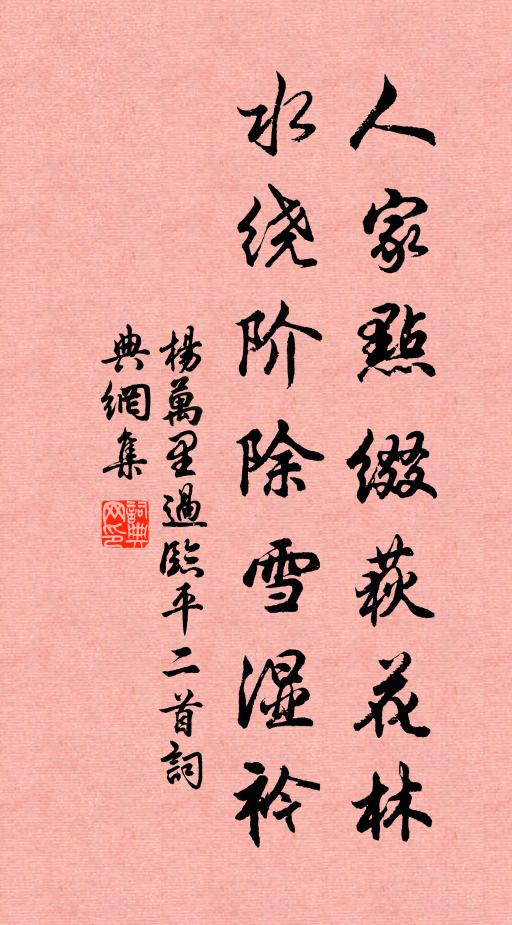 人家點缀荻花林
水绕阶除雪湿衿
楊萬里過臨平二首詞
典網集
詞典
网印